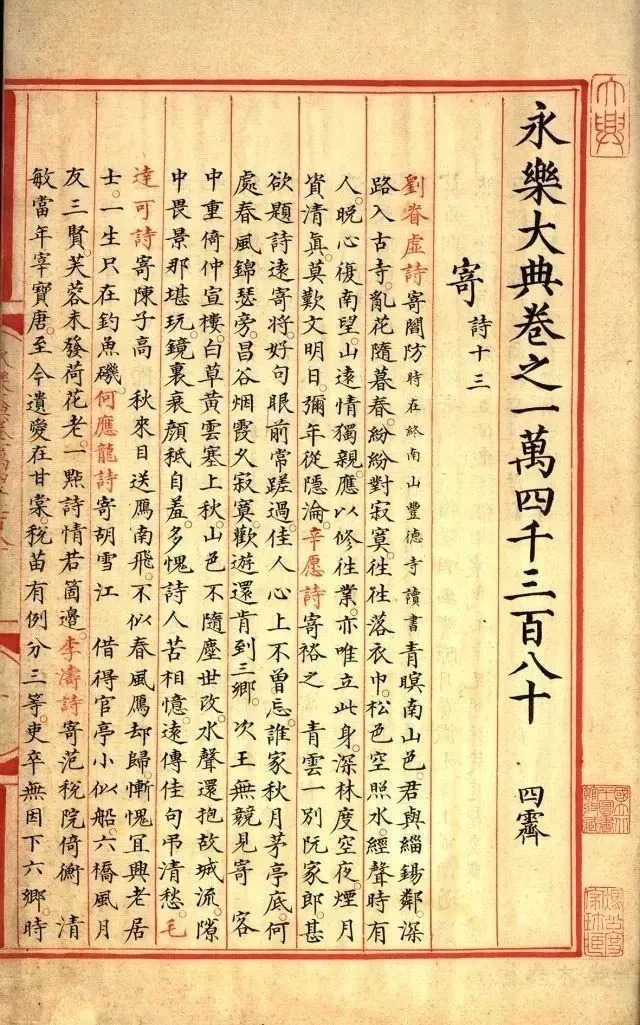 永樂大典卷之一萬四千三百八十 四霽
寄 詩十三
劉眘虛詩寄閻防時在終南山豐德寺讀書青暝南山色。君與緇錫鄰。深
路入古寺。亂花隨暮春。紛紛對寂寞。往往落衣巾。松色空照水。經聲時有
人。晚心復南望。山遠情獨親。應以修往業。亦唯立此身。深林度空夜。煙月
資清眞。莫歎文明日。彌年從隱淪。辛愿詩寄裕之 青雲一別阮家郎。甚
欲題詩遠寄將。好句眼前常蹉過。佳人心上不曾忘。誰家秋月茅亭底。何
處春風錦瑟旁。昌谷烟霞久寂寞。歡遊還肯到三鄉。次王無競見寄 客
中重倚仲宣樓。白草黃雲塞上秋。山色不隨塵世改。水聲還抱故城流。隙
中畏景那堪玩。鏡裏衰顏秪自羞。多愧詩人苦相憶。遠傳佳句弔清愁。毛
達可詩寄陳子高 秋來日送鴈南飛。不似春風鴈却歸。慚愧冝興老居
士。一生只在釣魚磯。何應龍詩寄胡雪江 借得官亭小似船。六橋風月
友三賢。芙蓉未發荷花老。一點詩情若箇邊。李濤詩寄范稅院倚衡 清
敏當年宰寶唐。至今遺愛在甘棠。稅苗有例分三等。吏卒無因下六鄉。時